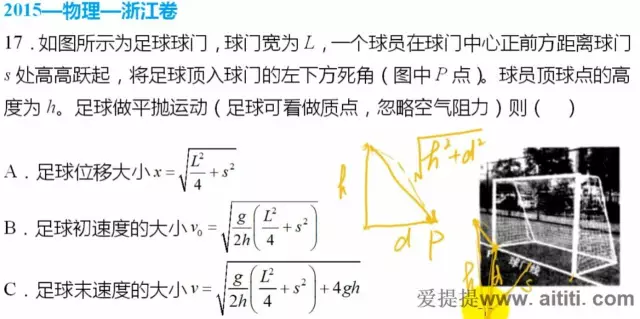 2015—物理—浙江卷
17．如图所示为足球球门，球门宽为 L，一个球员在球门中心正前方距离球门
s 处高高跃起，将足球顶入球门的左下方死角（图中 P 点）。球员顶球点的高
度为 h。足球做平抛运动（足球可看做质点，忽略空气阻力）则（　）
A．足球位移大小 x=√(L²/4+s²)
B．足球初速度的大小 v₀=√(g/2h(L²/4+s²))
C．足球末速度的大小 v=√(g/2h(L²/4+s²)+4gh)
h
√(h²+d²)
d P
球门线
h
s
爱提提www.aititi.com